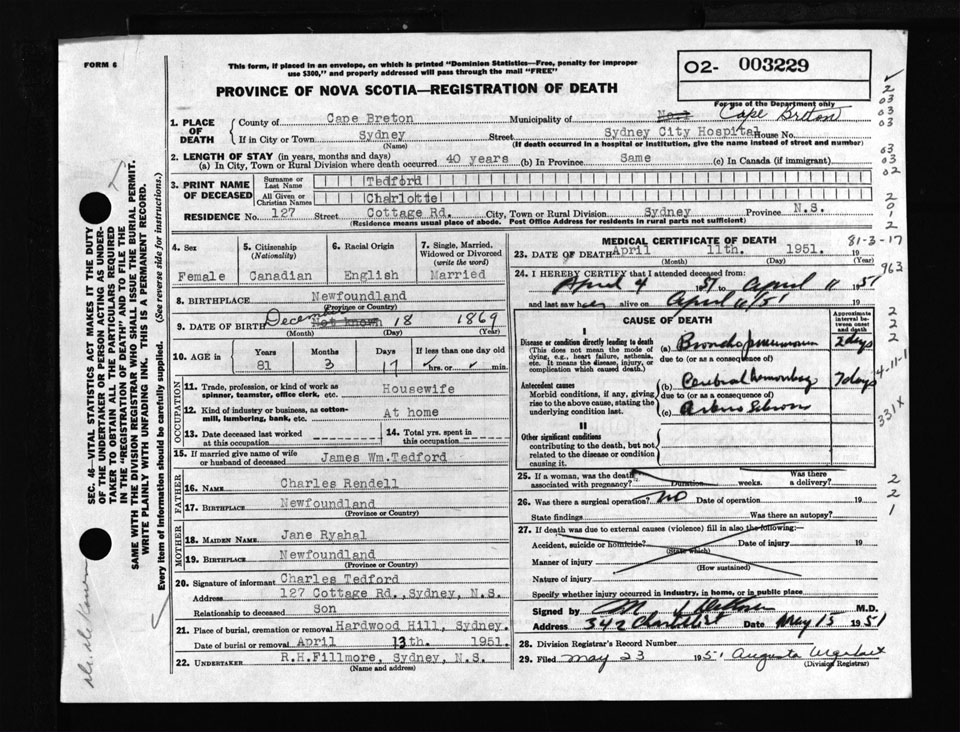 FORM 6
This form, if placed in an envelope, on which is printed "Dominion Statistics—Free, penalty for improper
use $300," and properly addressed will pass through the mail "FREE"
O2- 003229
PROVINCE OF NOVA SCOTIA—REGISTRATION OF DEATH
For use of the Department only
1. PLACE OF DEATH
County of Cape Breton Municipality of Cape Breton
If in City or Town Sydney Street Sydney City Hospital House No.
(Name) (If death occurred in a hospital or institution, give the name instead of street and number)
2. LENGTH OF STAY (in years, months and days)
(a) In City, Town or Rural Division where death occurred 40 years (b) In Province Same (c) In Canada (if immigrant)
3. PRINT NAME OF DECEASED
Surname or Last Name Tedford
All Given or Christian Names Charlotte
RESIDENCE No. 127 Street Cottage Rd. City, Town or Rural Division Sydney Province N.S.
(Residence means usual place of abode. Post Office Address for residents in rural parts not sufficient)
4. Sex
Female
5. Citizenship (Nationality)
Canadian
6. Racial Origin
English
7. Single, Married, Widowed or Divorced (write the word)
Married
8. BIRTHPLACE Newfoundland
(Province or Country)
9. DATE OF BIRTH December Not known 18 1869
(Month) (Day) (Year)
10. AGE in
Years Months Days If less than one day old
81 3 17 hrs. or min.
OCCUPATION
11. Trade, profession, or kind of work as spinner, teamster, office clerk, etc. Housewife
12. Kind of industry or business, as cotton-mill, lumbering, bank, etc. At home
13. Date deceased last worked at this occupation
14. Total yrs. spent in this occupation
15. If married give name of wife or husband of deceased James Wm.Tedford
FATHER
16. NAME Charles Rendell
17. BIRTHPLACE Newfoundland
(Province or Country)
MOTHER
18. MAIDEN NAME Jane Ryahal
19. BIRTHPLACE Newfoundland
(Province or Country)
20. Signature of informant Charles Tedford
Address 127 Cottage Rd.,Sydney, N.S.
Relationship to deceased Son
21. Place of burial, cremation or removal Hardwood Hill, Sydney.
Date of burial or removal April 13th. 1951.
22. UNDERTAKER R.H.Fillmore, Sydney, N.S.
MEDICAL CERTIFICATE OF DEATH
81-3-17
23. DATE OF DEATH April 11th. 1951. 19
(Month) (Day)
24. I HEREBY CERTIFY that I attended deceased from:
April 4 1951 to April 11 1951
and last saw her alive on April 11/51 19
963
CAUSE OF DEATH
Approximate interval between onset and death
I
Disease or condition directly leading to death (a) Broncho pneumonia 2 days
(This does not mean the mode of dying, e.g., heart failure, asthenia, etc. It means the disease, injury, or complication which caused death.)
due to (or as a consequence of)
Antecedent causes (b) Cerebral hemorrhage 7 days
Morbid conditions, if any, giving rise to the above cause, stating the underlying condition last.
due to (or as a consequence of)
(c)
4-11-1
331X
II
Other significant conditions
contributing to the death, but not related to the disease or condition causing it.
25. If a woman, was the death associated with pregnancy? Duration weeks. Was there a delivery?
26. Was there a surgical operation? no Date of operation 19
State findings Was there an autopsy?
27. If death was due to external causes (violence) fill in also the following:—
Accident, suicide or homicide? Date of injury 19
(State which)
Manner of injury
(How sustained)
Nature of injury
Specify whether injury occurred in industry, in home, or in public place
Signed by M.D.
Address 342 Charlotte St Date May 15 1951
28. Division Registrar's Record Number
29. Filed May 23 1951 Augusta Urquhart
(Division Registrar)
SEC. 46—VITAL STATISTICS ACT MAKES IT THE DUTY
OF THE UNDERTAKER OR PERSON ACTING AS UNDER-
TAKER TO OBTAIN ALL THE PARTICULARS REQUIRED
IN THE "REGISTRATION OF DEATH" AND TO FILE THE
SAME WITH THE DIVISION REGISTRAR WHO SHALL ISSUE THE BURIAL PERMIT.
WRITE PLAINLY WITH UNFADING INK. THIS IS A PERMANENT RECORD.
Every item of information should be carefully supplied. (See reverse side for instructions.)